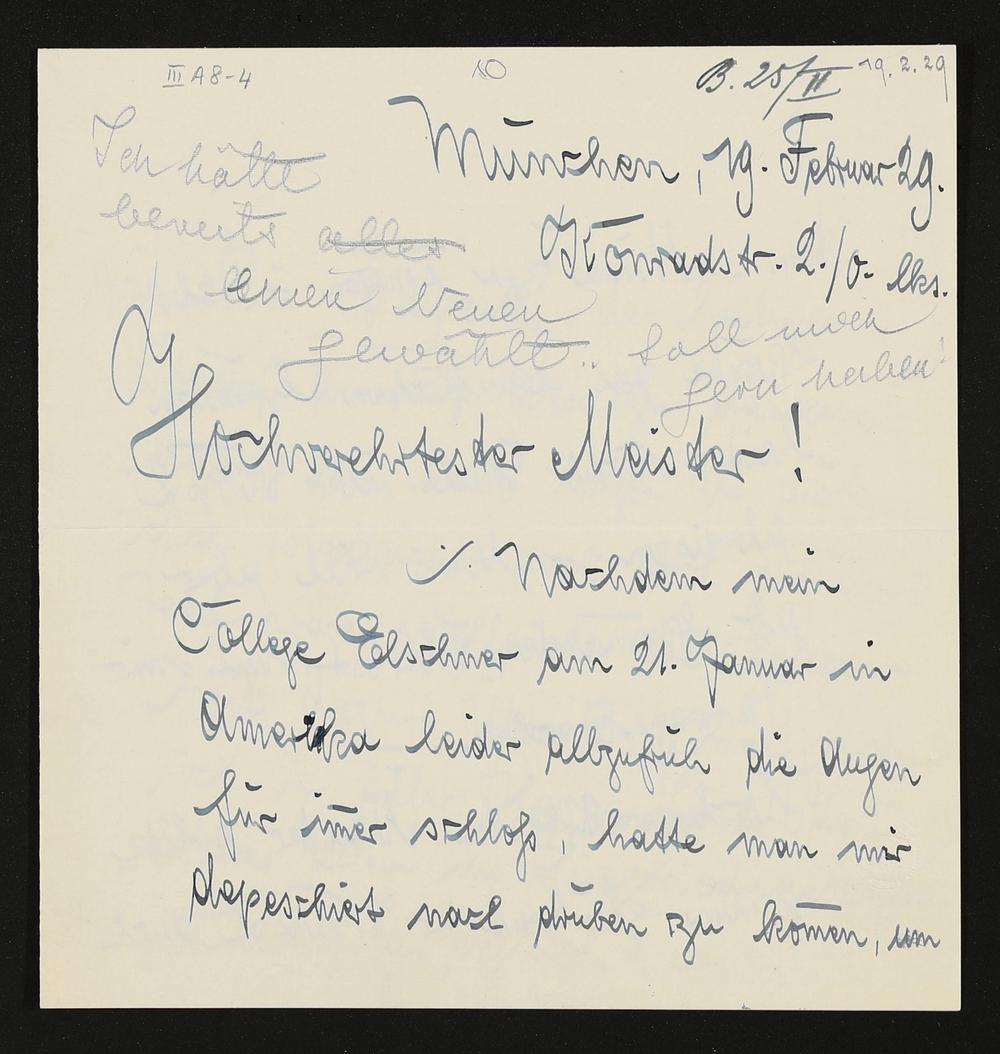 III A 8-4
10
B. 25/II
19.2.29
München, 19. Februar 29.
Konradstr. 2./0. lks.
Ich hätte
bereits aller
einen Neuen
gewählt.. Soll mich
gern haben!
Hochverehrtester Meister!
./. Nachdem mein
College Elschner am 21. Januar in
Amerika leider allzufrüh die Augen
für im̅er schloß, hatte man mir
depeschiert nach drüben zu kom̅en, um